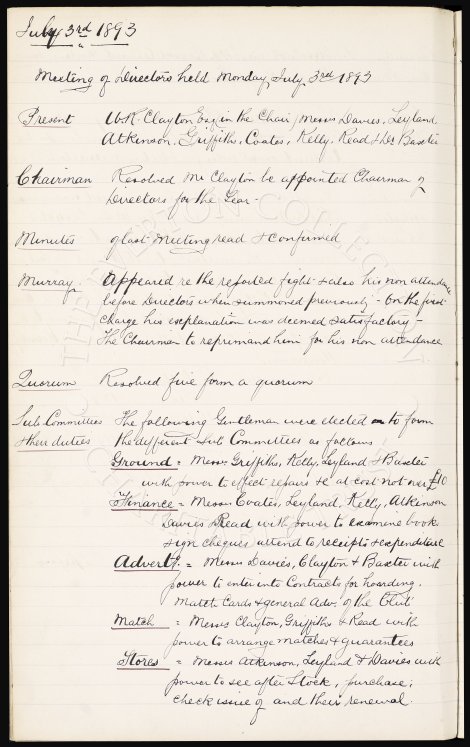 July 3rd 1893
Meeting of Directors held Monday, July 3rd 1893
Present W.R. Clayton Esq in the Chair, Messrs Davies, Leyland
Atkinson, Griffiths, Coates, Kelly, Read & Dr Baxter
Chairman Resolved Mr Clayton be appointed Chairman of
Directors for the Year -
Minutes of last Meeting read & confirmed
Murray. Appeared re the reported fight & also his non attendance
before Directors when summoned previously - On the first
charge his explanation was deemed satisfactory -
The Chairman to reprimand him for his non attendance
Quorum Resolved five form a quorum
Sub Committees The following Gentleman were elected to form
& their duties the different Sub Committees as follows
Ground = Messrs Griffiths, Kelly, Leyland & Baxter
with power to effect repairs &c at cost not over £10
Finance = Messrs Coates, Leyland, Kelly, Atkinson
Davies & Read with power to examine book
sign cheques attend to receipts & expenditure
Advertg. = Messrs Davies, Clayton & Baxter with
power to enter into Contracts for hoarding.
Match Cards & general Adv. of the Club
Match = Messrs Clayton, Griffiths & Read with
power to arrange matches & guarantees
Stores = Messrs Atkinson, Leyland & Davies with
power to see after Stock, purchase,
check issue of and their renewal.
THE EVERTON COLLECTION